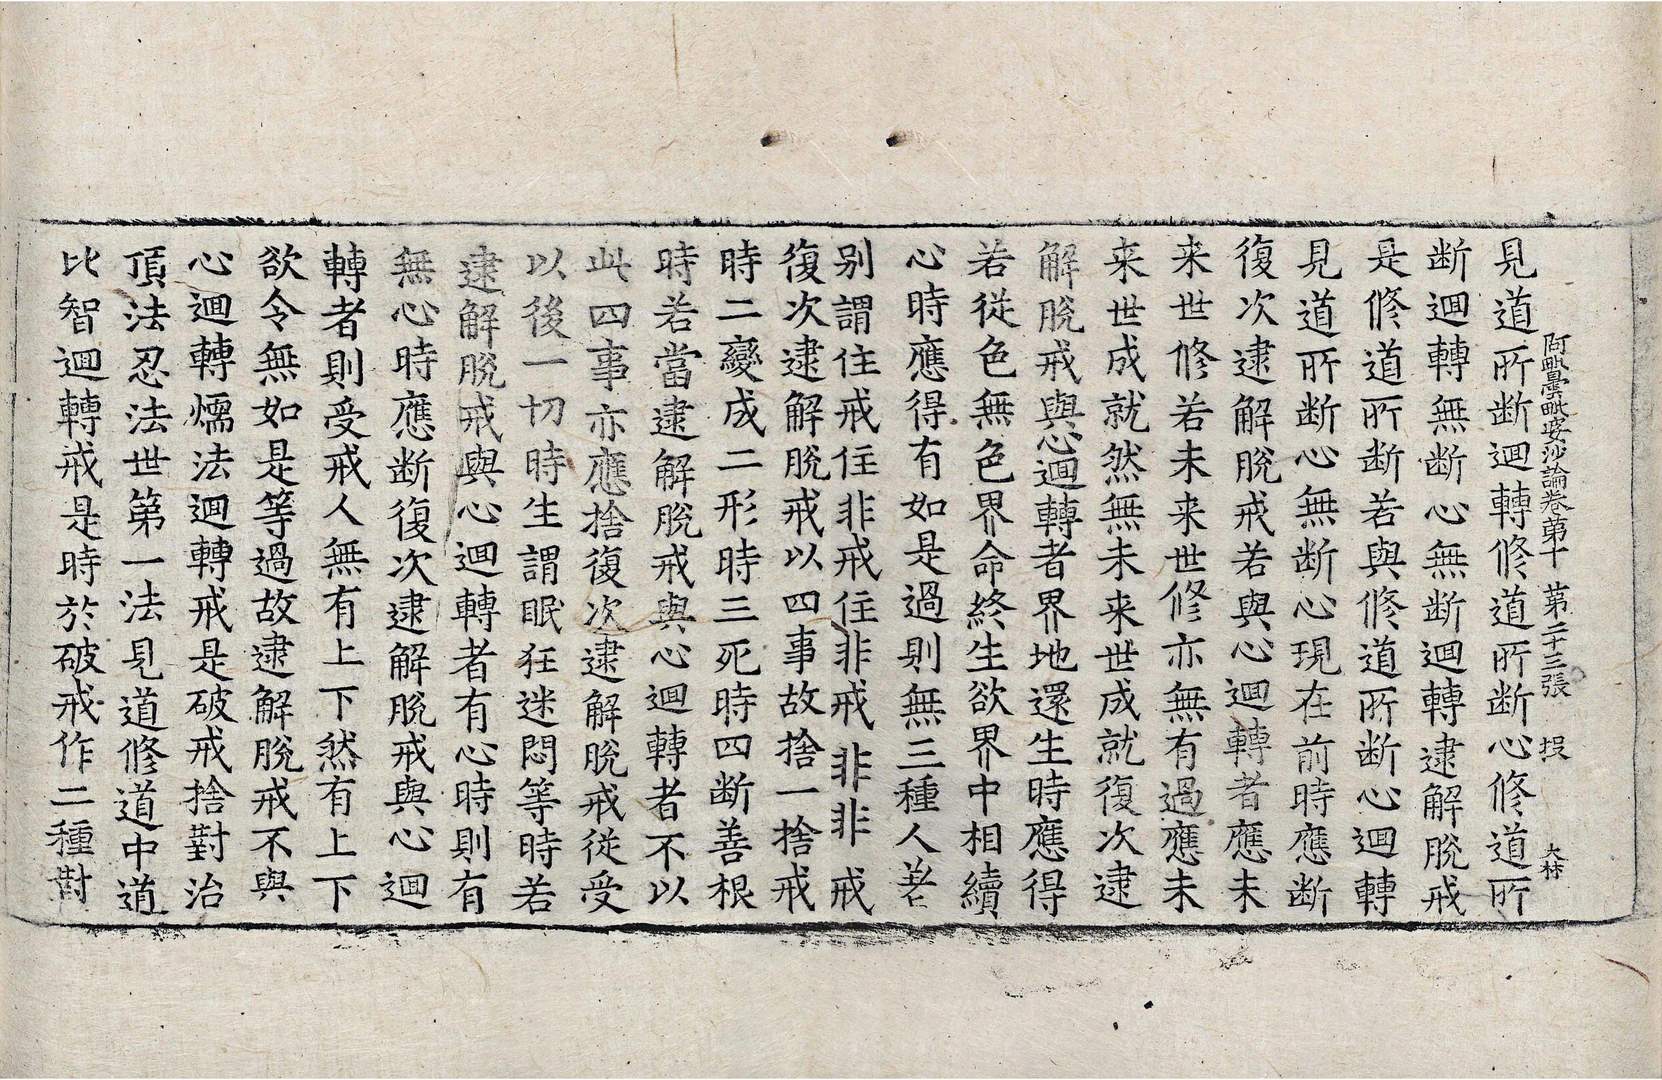 阿毗曇毗婆沙論卷第十　第二十三張　投　大材
見道所断迴轉修道所断心修道所
断迴轉無断心無断迴轉逮解脫戒
是修道所断若與修道所断心迴轉
見道所断心無断心現在前時應断
復次逮解脫戒若與心迴轉者應未
来世修若未来世修亦無有過應未
来世成就然無未来世成就復次逮
解脫戒與心迴轉者界地還生時應得
若從色無色界命終生欲界中相續
心時應得有如是過則無三種人差
别謂住戒住非戒住非戒非非戒
復次逮解脫戒以四事故捨一捨戒
時二變成二形時三死時四断善根
時若當逮解脫戒與心迴轉者不以
此四事亦應捨復次逮解脫戒從受
以後一切時生謂眠狂迷悶等時若
逮解脫戒與心迴轉者有心時則有
無心時應断復次逮解脫戒與心迴
轉者則受戒人無有上下然有上下
欲令無如是等過故逮解脫戒不與
心迴轉燸法迴轉戒是破戒捨對治
頂法忍法世第一法見道修道中道
比智迴轉戒是時於破戒作二種對